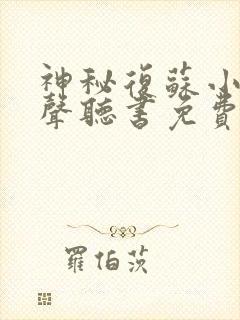 神秘復蘇小
聲聽書免費
羅伯茨